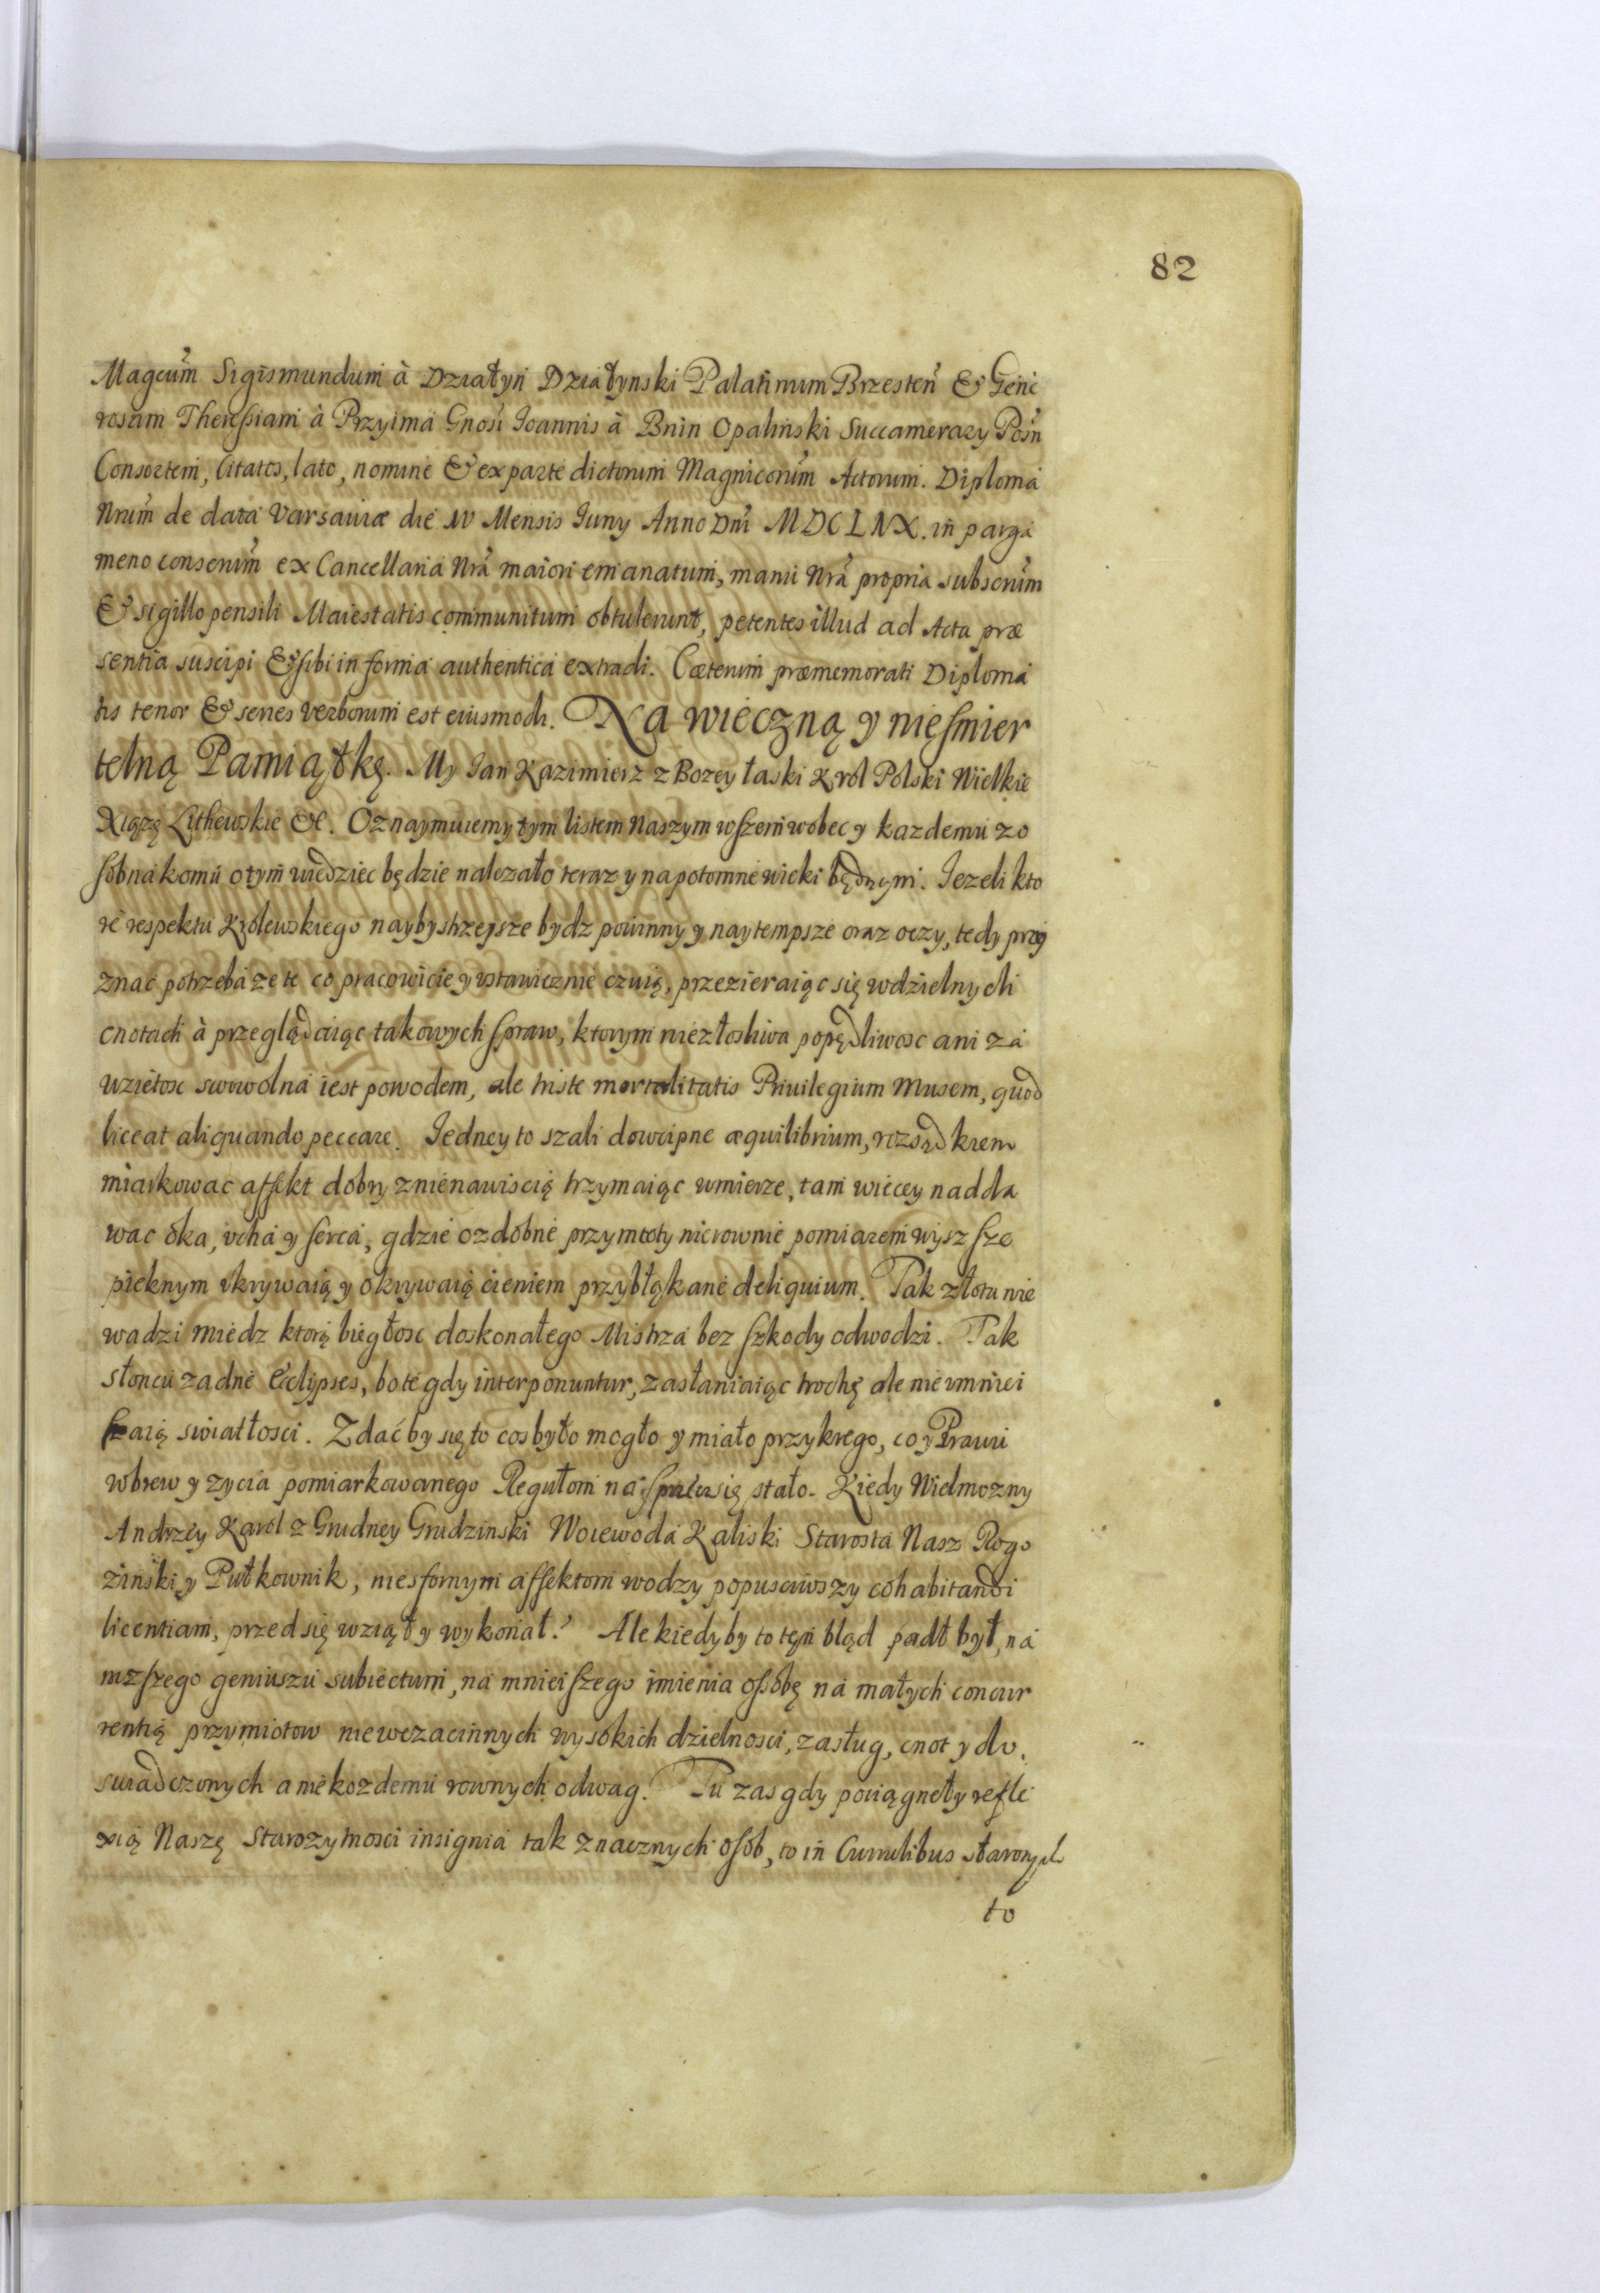 82
Magcum̃ Sigismundum à Działyn Działynski Palatinum Brzesteñ & Gene
rosam Theressiam à Przyima Gnosi Ioannis à Bnin Opalinski Succamerary Posñ
Consortem, Citatos, lato, nomine & ex parte dictorum Magnicorum̃ Actorum. Diploma
Nrum̃ de data Varsaviæ die Mensis Iuny Anno Dnĩ MDCLXX. in parga
meno conscrium̃ ex Cancellaria Nrã maiori emanatum, manu Nrã propria subscrium̃
& sigillo pensili Maiestatis communitum obtulerunt, petentes illud ad Acta præ
sentia suscipi & sibi in forma authentica extradi. Cæterum præmemorati Diploma
tis tenor & series verborum est eiusmodi. Na wieczną y nieśmier
telną Pamiątkę. My Ian Kazimierz z Bozey łaski Krol Polski Wielkie
Xiązę Lithewskie &c. Oznaymuiemy tym listem Naszym wszem wobec y kazdemu zo
sobna komu o tym wiedziec będzie nalezało teraz y napotomne wieki będącym. Iezeli kto
re respektu Krolewskiego naybystrzeysze bydz powinny y naytempsze oraz oczy, tedy przy
znac potrzeba ze te co pracowicie y vstawicznie czuią, przezieraiąc się wdzielnych
cnotach à przeglądaiąc takowych spraw, ktorym niezłosliwa popędliwosc ani za
wziętosc swowolna iest powodem, ale triste mortalitatis Priuilegium Musem, quod
liceat aliquando peccare. Iedney to szali dowcipne æquilibrium, rozsądkiem
miarkowac affekt dobry znienawiscią trzymaiąc wmierze, tam wiecey nadda
wac oka, vcha y serca, gdzie ozdobne przymioty nierownie pomiarem wyszsze
pieknym vkrywaią y okrywaią cieniem przybłąkane deliquium. Tak złotu nie
wadzi miedz ktorą biegłosc doskonałego Mistrza bez szkody odwodzi. Tak
słoncu zadne Ecclypses, bo te gdy interponuntur, zasłaniaiąc trochę ale nie vmniei
szaią swiatłosci. Zdać by się to cos było mogło y miało przykrego, co y Prawu
wbrew y zycia pomiarkowanego Regułom na się stało. Kiedy Wielmozny
Andrzey Karol z Grudney Grudzinski Woiewoda Kaliski Starosta Nasz Rogo
zinski y Pułkownik, niesfornym affektom wodzy popusciwszy cohabitandi
licentiam, przedsię wziął y wykonał? Ale kiedyby to ten bląd padł był, na
nizszego geniuszu subiectum, na mnieiszego imienia osobę na małych concur
rentią przymiotow niewczacinnych wysokich dzielnosci, zasług, cnot y do
swiadczonych a niekozdemu rownych odwag. Tu zas gdy pociągneły refle
xią Naszę Starozytnosci insignia tak znacznych osob, to in Curulibus starony
to